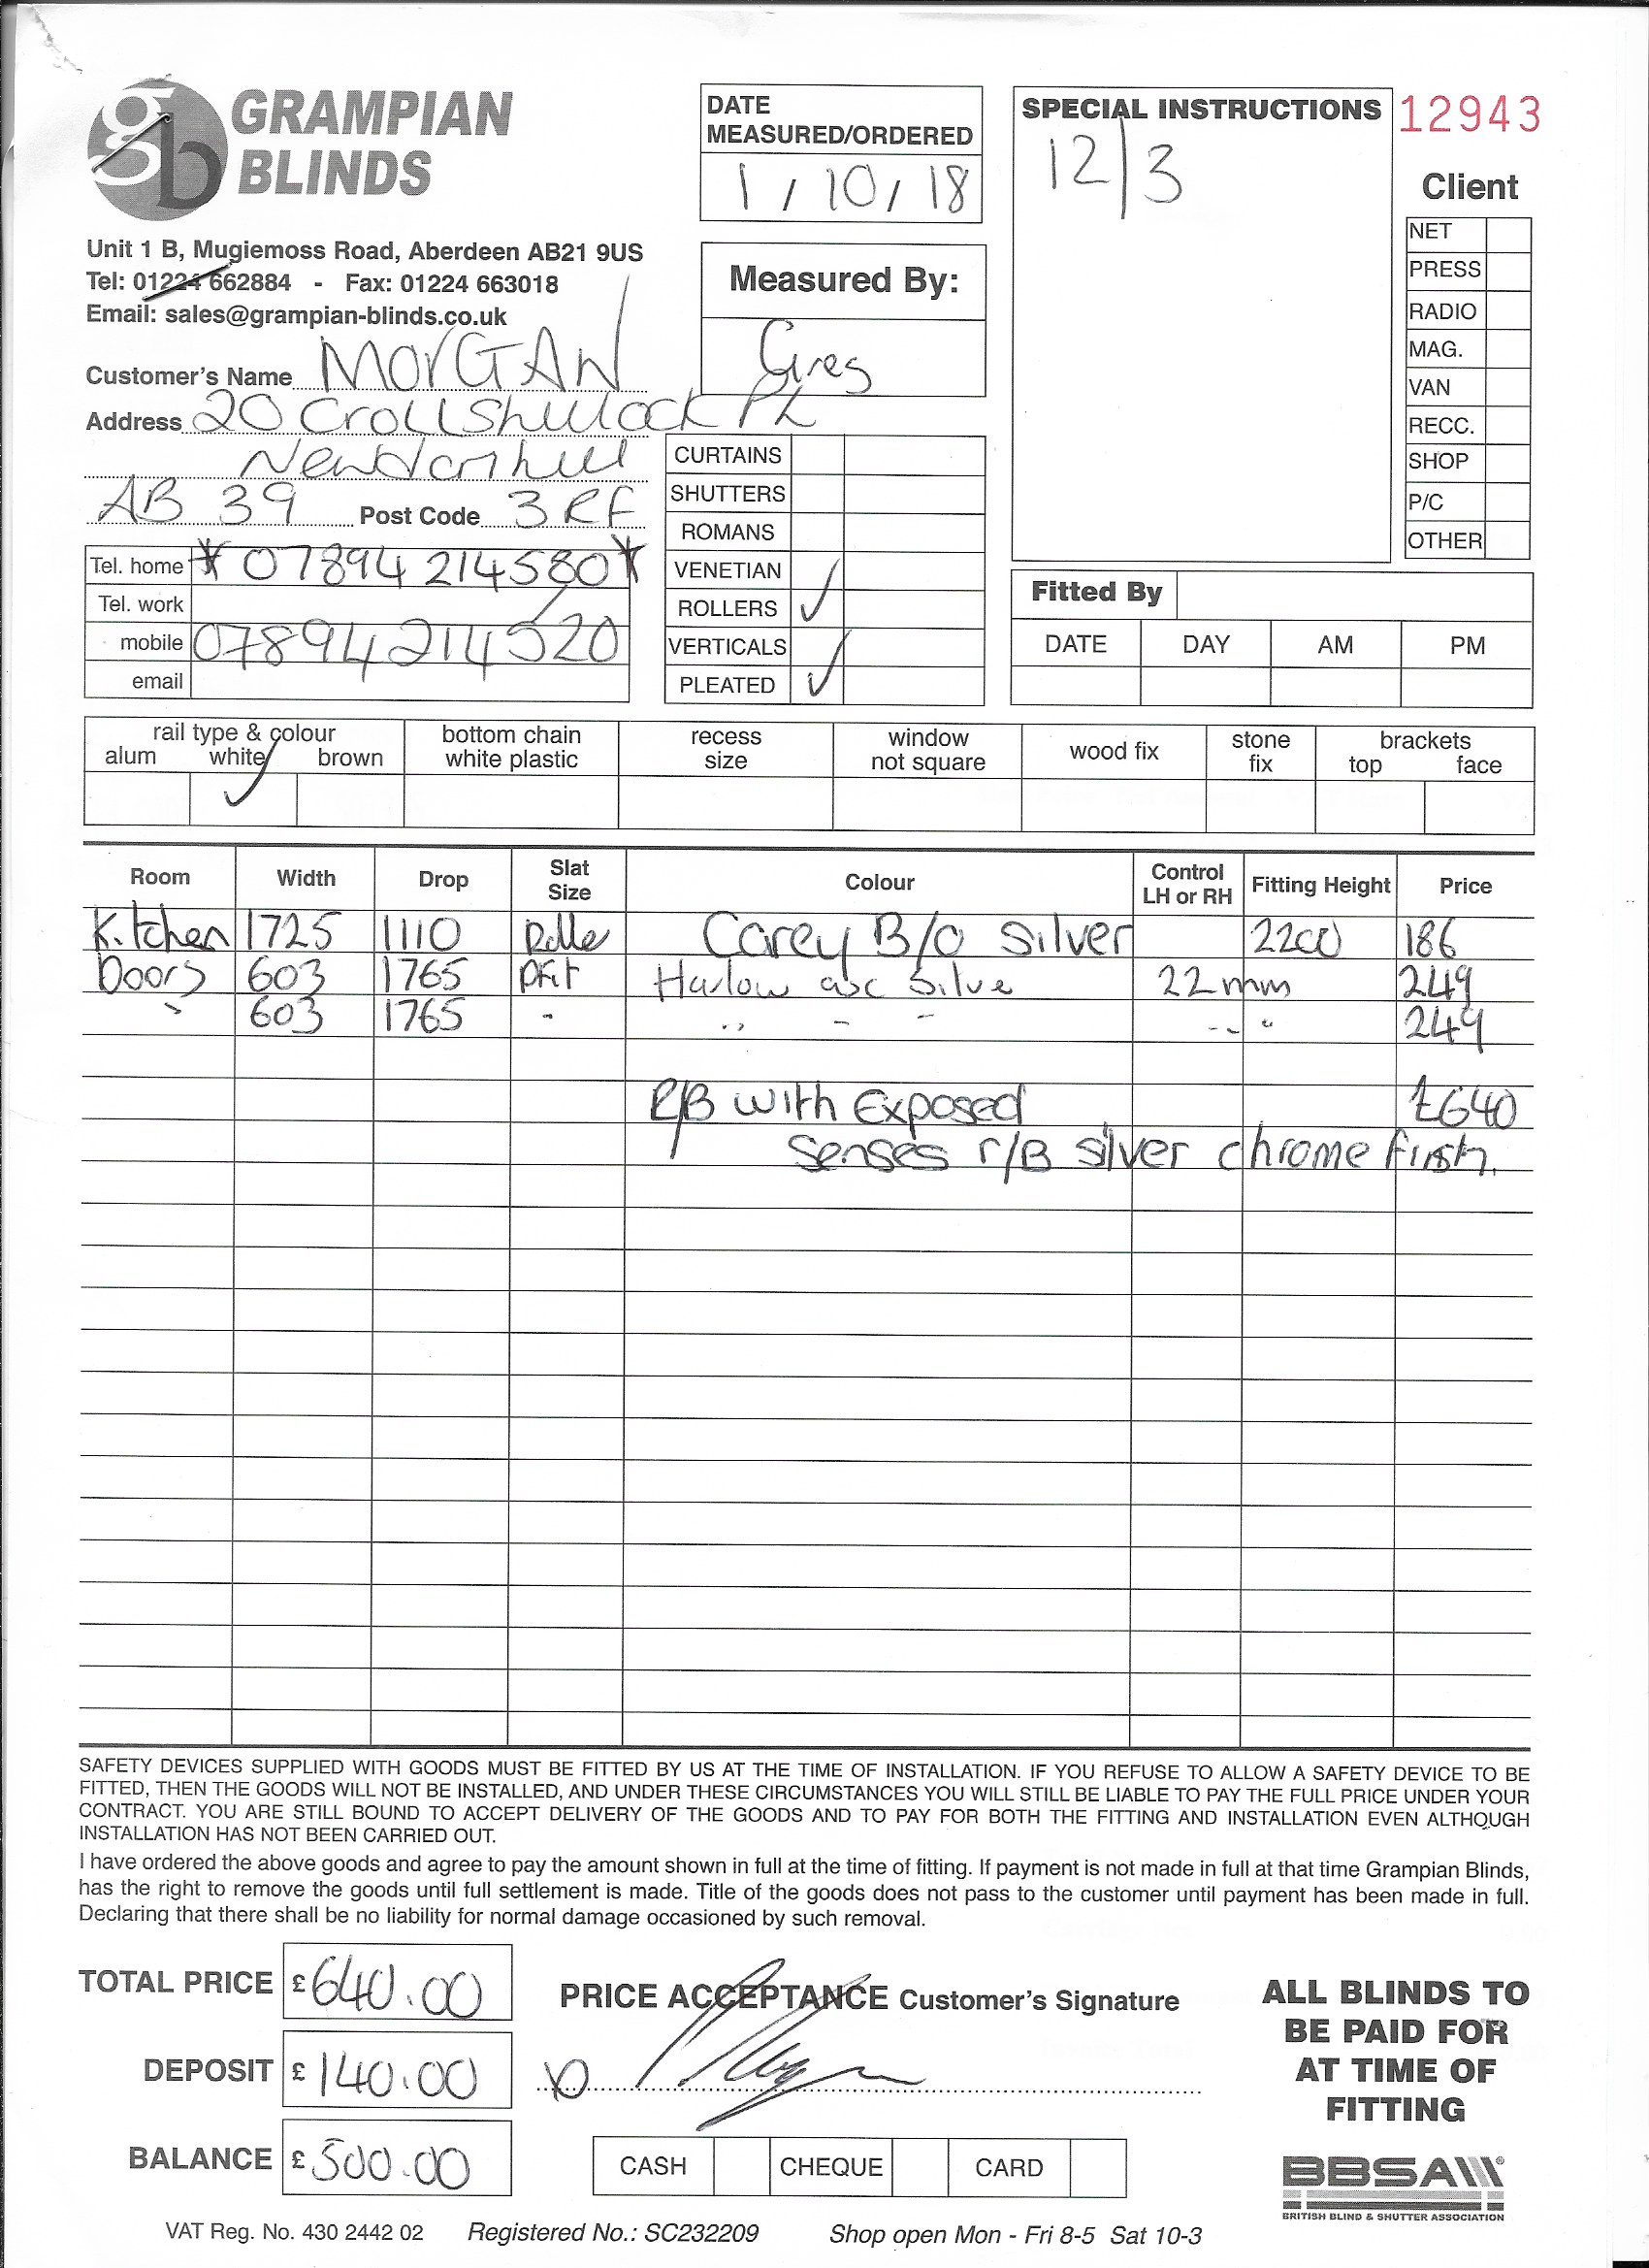 GRAMPIAN
BLINDS
Unit 1 B, Mugiemoss Road, Aberdeen AB21 9US
Tel: 01224 662884 - Fax: 01224 663018
Email: sales@grampian-blinds.co.uk
DATE
MEASURED/ORDERED
1 / 10 / 18
Measured By:
Greg
SPECIAL INSTRUCTIONS
12/3
12943
Client
NET
PRESS
RADIO
MAG.
VAN
RECC.
SHOP
P/C
OTHER
Customer's Name MORGAN
Address 20 Crollshillock PL
Newtonhill
AB 39 Post Code 3RF
Tel. home * 07894 214580 *
Tel. work
mobile 07894214520
email
CURTAINS
SHUTTERS
ROMANS
VENETIAN
ROLLERS ✓
VERTICALS
PLEATED ✓
Fitted By
DATE DAY AM PM
rail type & colour
alum white brown
✓
bottom chain
white plastic
recess
size
window
not square
wood fix
stone
fix
brackets
top face
Room Width Drop Slat Size Colour Control LH or RH Fitting Height Price
Kitchen 1725 1110 Rolle Carey B/O Silver 2200 186
Doors 603 1765 PFit Harlow asc Silve 22mm 249
" 603 1765 - " - - - - " 249
R/B with Exposed £640
Senses r/B silver chrome finsh.
SAFETY DEVICES SUPPLIED WITH GOODS MUST BE FITTED BY US AT THE TIME OF INSTALLATION. IF YOU REFUSE TO ALLOW A SAFETY DEVICE TO BE
FITTED, THEN THE GOODS WILL NOT BE INSTALLED, AND UNDER THESE CIRCUMSTANCES YOU WILL STILL BE LIABLE TO PAY THE FULL PRICE UNDER YOUR
CONTRACT. YOU ARE STILL BOUND TO ACCEPT DELIVERY OF THE GOODS AND TO PAY FOR BOTH THE FITTING AND INSTALLATION EVEN ALTHOUGH
INSTALLATION HAS NOT BEEN CARRIED OUT.
I have ordered the above goods and agree to pay the amount shown in full at the time of fitting. If payment is not made in full at that time Grampian Blinds,
has the right to remove the goods until full settlement is made. Title of the goods does not pass to the customer until payment has been made in full.
Declaring that there shall be no liability for normal damage occasioned by such removal.
TOTAL PRICE £640.00
DEPOSIT £140.00
BALANCE £500.00
PRICE ACCEPTANCE Customer's Signature
CASH CHEQUE CARD
ALL BLINDS TO
BE PAID FOR
AT TIME OF
FITTING
BBSA
BRITISH BLIND & SHUTTER ASSOCIATION
VAT Reg. No. 430 2442 02 Registered No.: SC232209 Shop open Mon - Fri 8-5 Sat 10-3